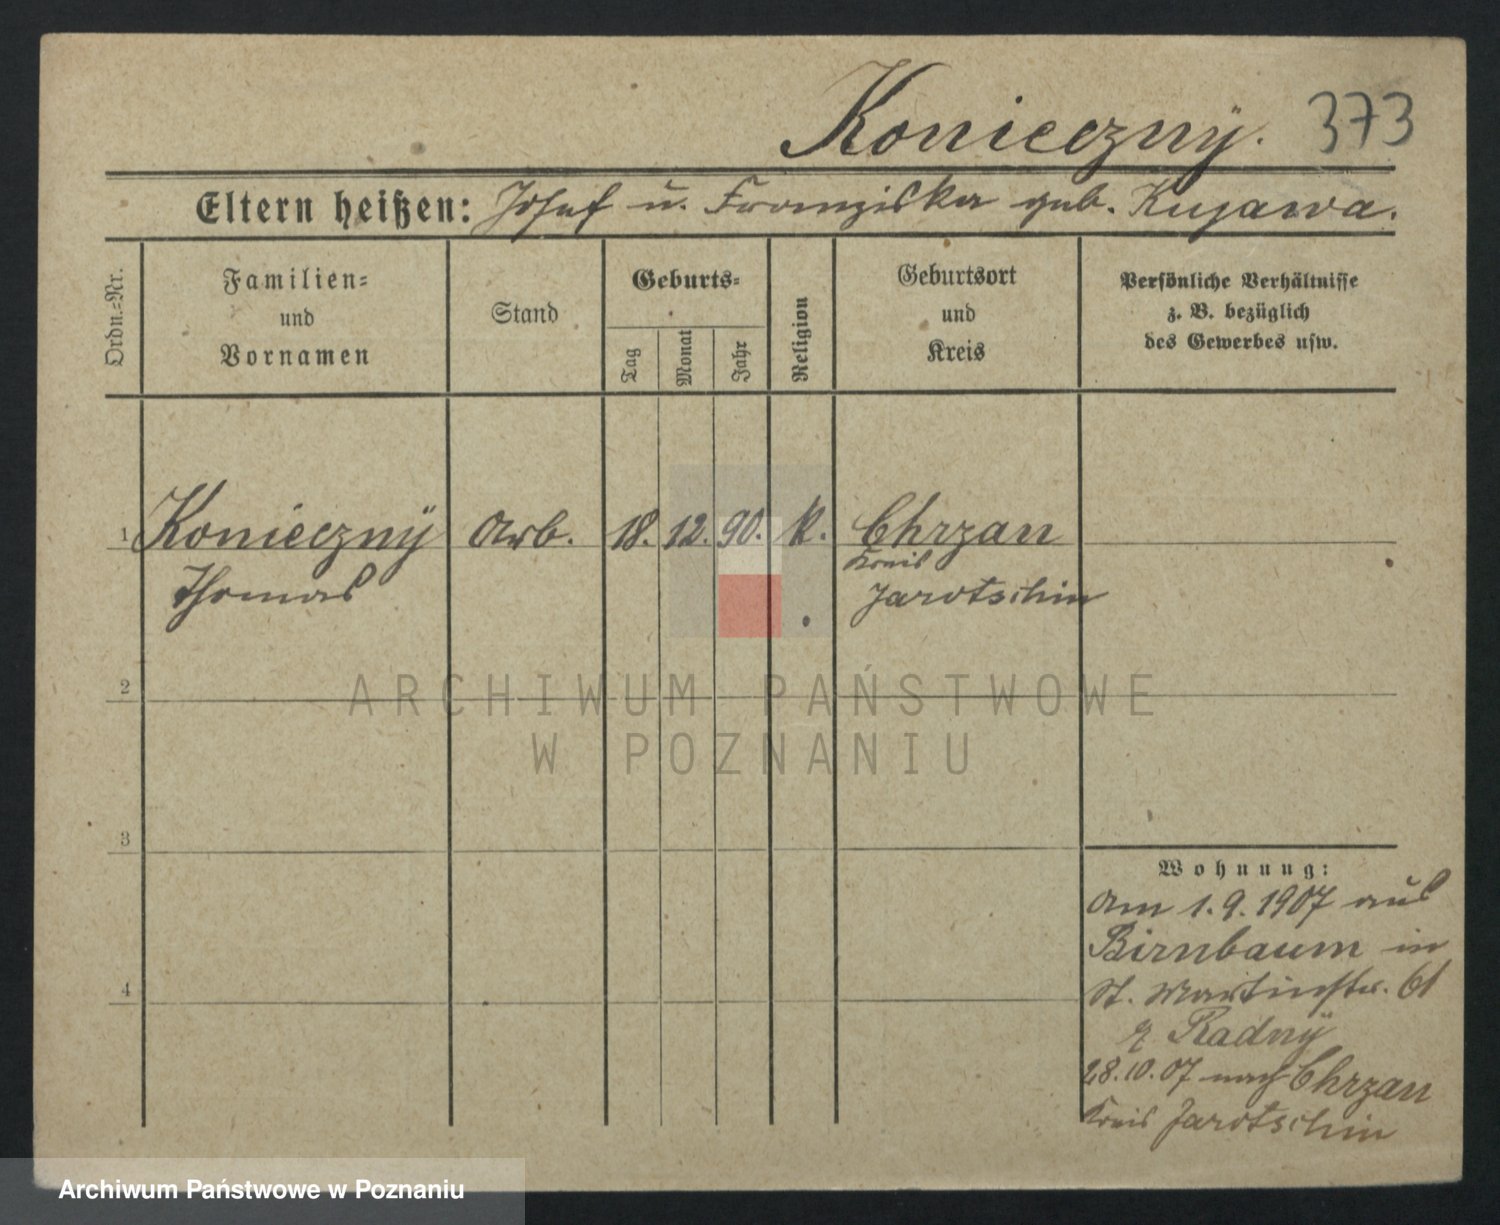 Konieczny. 373
Eltern heißen: Josef u. Franziska geb. Kujawa.
Ordn.-Nr.
Familien-
und
Vornamen
Stand
Geburts-
Tag
Monat
Jahr
Religion
Geburtsort
und
Kreis
Persönliche Verhältnisse
z. B. bezüglich
des Gewerbes usw.
1 Konieczny Arb. 18. 12. 90. k. Chrzan
Kreis
Thomas Jarotschin
2
ARCHIWUM PAŃSTWOWE
W POZNANIU
3
Wohnung:
Am 1.9.1907 aus
Birnbaum in
St. Martinstr. 61
Radny
4
28.10.07 nach Chrzan
Kreis Jarotschin
Archiwum Państwowe w Poznaniu